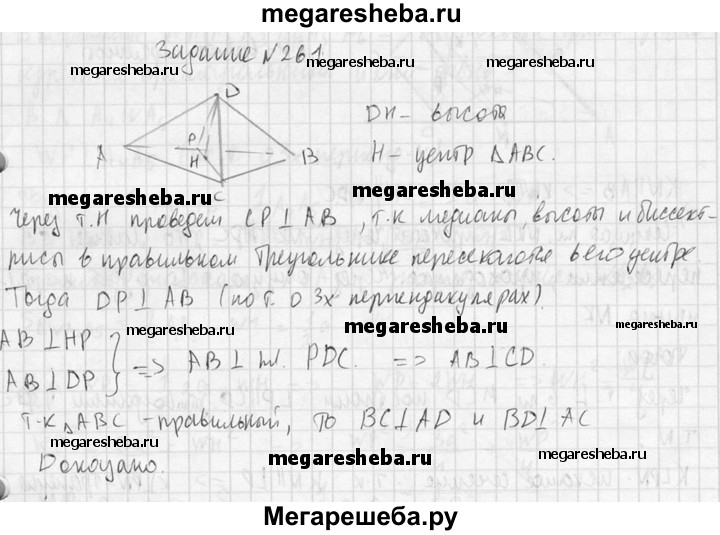 megaresheba.ru
Задание №261
megaresheba.ru megaresheba.ru megaresheba.ru
D
DH - высота
P
A H B
H - центр △ABC.
C
megaresheba.ru megaresheba.ru
Через т.H проведем CP⊥AB, т.к медианы, высоты и биссект-
megaresheba.ru megaresheba.ru megaresheba.ru
рисы в правильном треугольнике пересекаются в его центре.
Тогда DP⊥AB (по т. о 3х перпендикулярах).
megaresheba.ru megaresheba.ru megaresheba.ru
AB⊥HP
AB⊥DP } => AB⊥пл. PDC. => AB⊥CD.
megaresheba.ru megaresheba.ru
т.к △ABC - правильный, то BC⊥AD и BD⊥AC
megaresheba.ru megaresheba.ru megaresheba.ru
Доказано.
Мегарешеба.ру